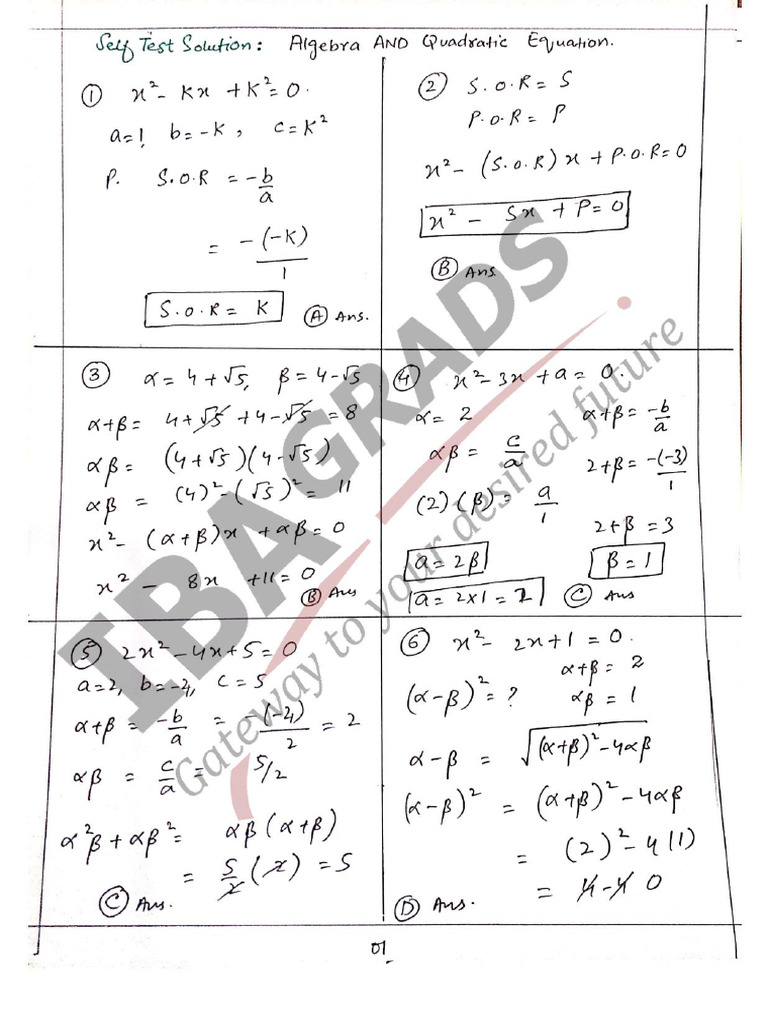 Self Test Solution: Algebra AND Quadratic Equation.
① x² - Kx + K² = 0.
a=1, b=-K, c=K²
P. S.O.R = -b/a
= -(-K)/1
S.O.R = K Ⓐ Ans.
② S.O.R = S
P.O.R = P
x² - (S.O.R)x + P.O.R = 0
x² - Sx + P = 0
Ⓑ Ans.
③ α = 4+√5, β = 4-√5
α+β = 4+√5 + 4-√5 = 8
αβ = (4+√5)(4-√5)
αβ = (4)² - (√5)² = 11
x² - (α+β)x + αβ = 0
x² - 8x + 11 = 0
Ⓑ Ans
④ x² - 3x + a = 0.
α = 2 α+β = -b/a
αβ = c/a 2+β = -(-3)/1
(2)(β) = a/1 2+β = 3
a = 2β β = 1
a = 2×1 = 2 Ⓒ Ans
⑤ 2x² - 4x + 5 = 0
a=2, b=-4, c=5
α+β = -b/a = -(-4)/2 = 2
αβ = c/a = 5/2
α²β + αβ² = αβ(α+β)
= 5/2 (2) = 5
Ⓒ Ans.
⑥ x² - 2x + 1 = 0.
α+β = 2
(α-β)² = ? αβ = 1
α-β = √(α+β)² - 4αβ
(α-β)² = (α+β)² - 4αβ
= (2)² - 4(1)
= 4-4 0
Ⓓ Ans.
01
IBA GRADS
Gateway to your desired future